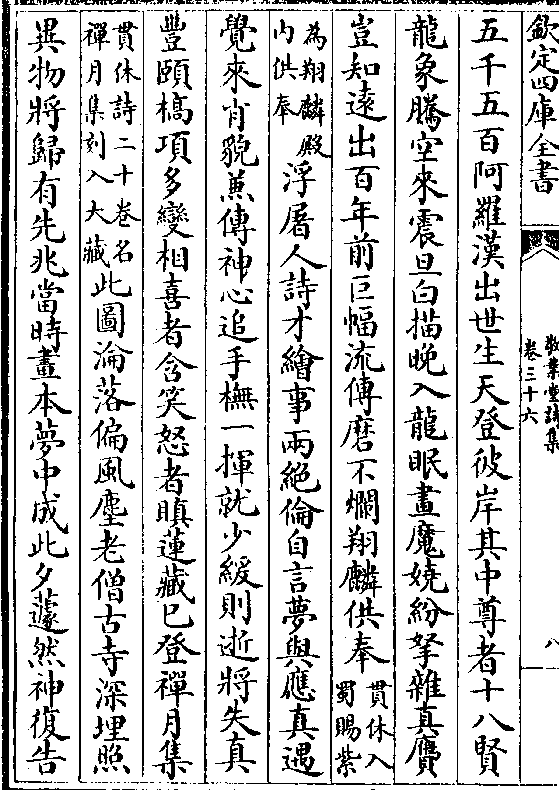 欽定四庫全書
敬業堂詩集
卷三十六
八
五千五百阿羅漢出世生天登彼岸其中尊者十八賢
龍象騰空來震旦白描晚入龍眠畫魔嬈紛拏雜真贗
豈知遠出百年前巨幅流傳磨不爛翔麟供奉貫休入蜀賜紫
為翔麟殿内供奉浮屠人詩才繪事兩絕倫自言夢與應真遇
覺來肖貌兼傳神心追手橅一揮就少緩則逝將失真
豐頤槁項多變相喜者含笑怒者瞋蓮藏已登禪月集
貫休詩二十卷名禪月集刻入大藏此圖淪落偏風塵老僧古寺深埋照
異物將歸有先兆當時畫本夢中成此夕蘧然神復告